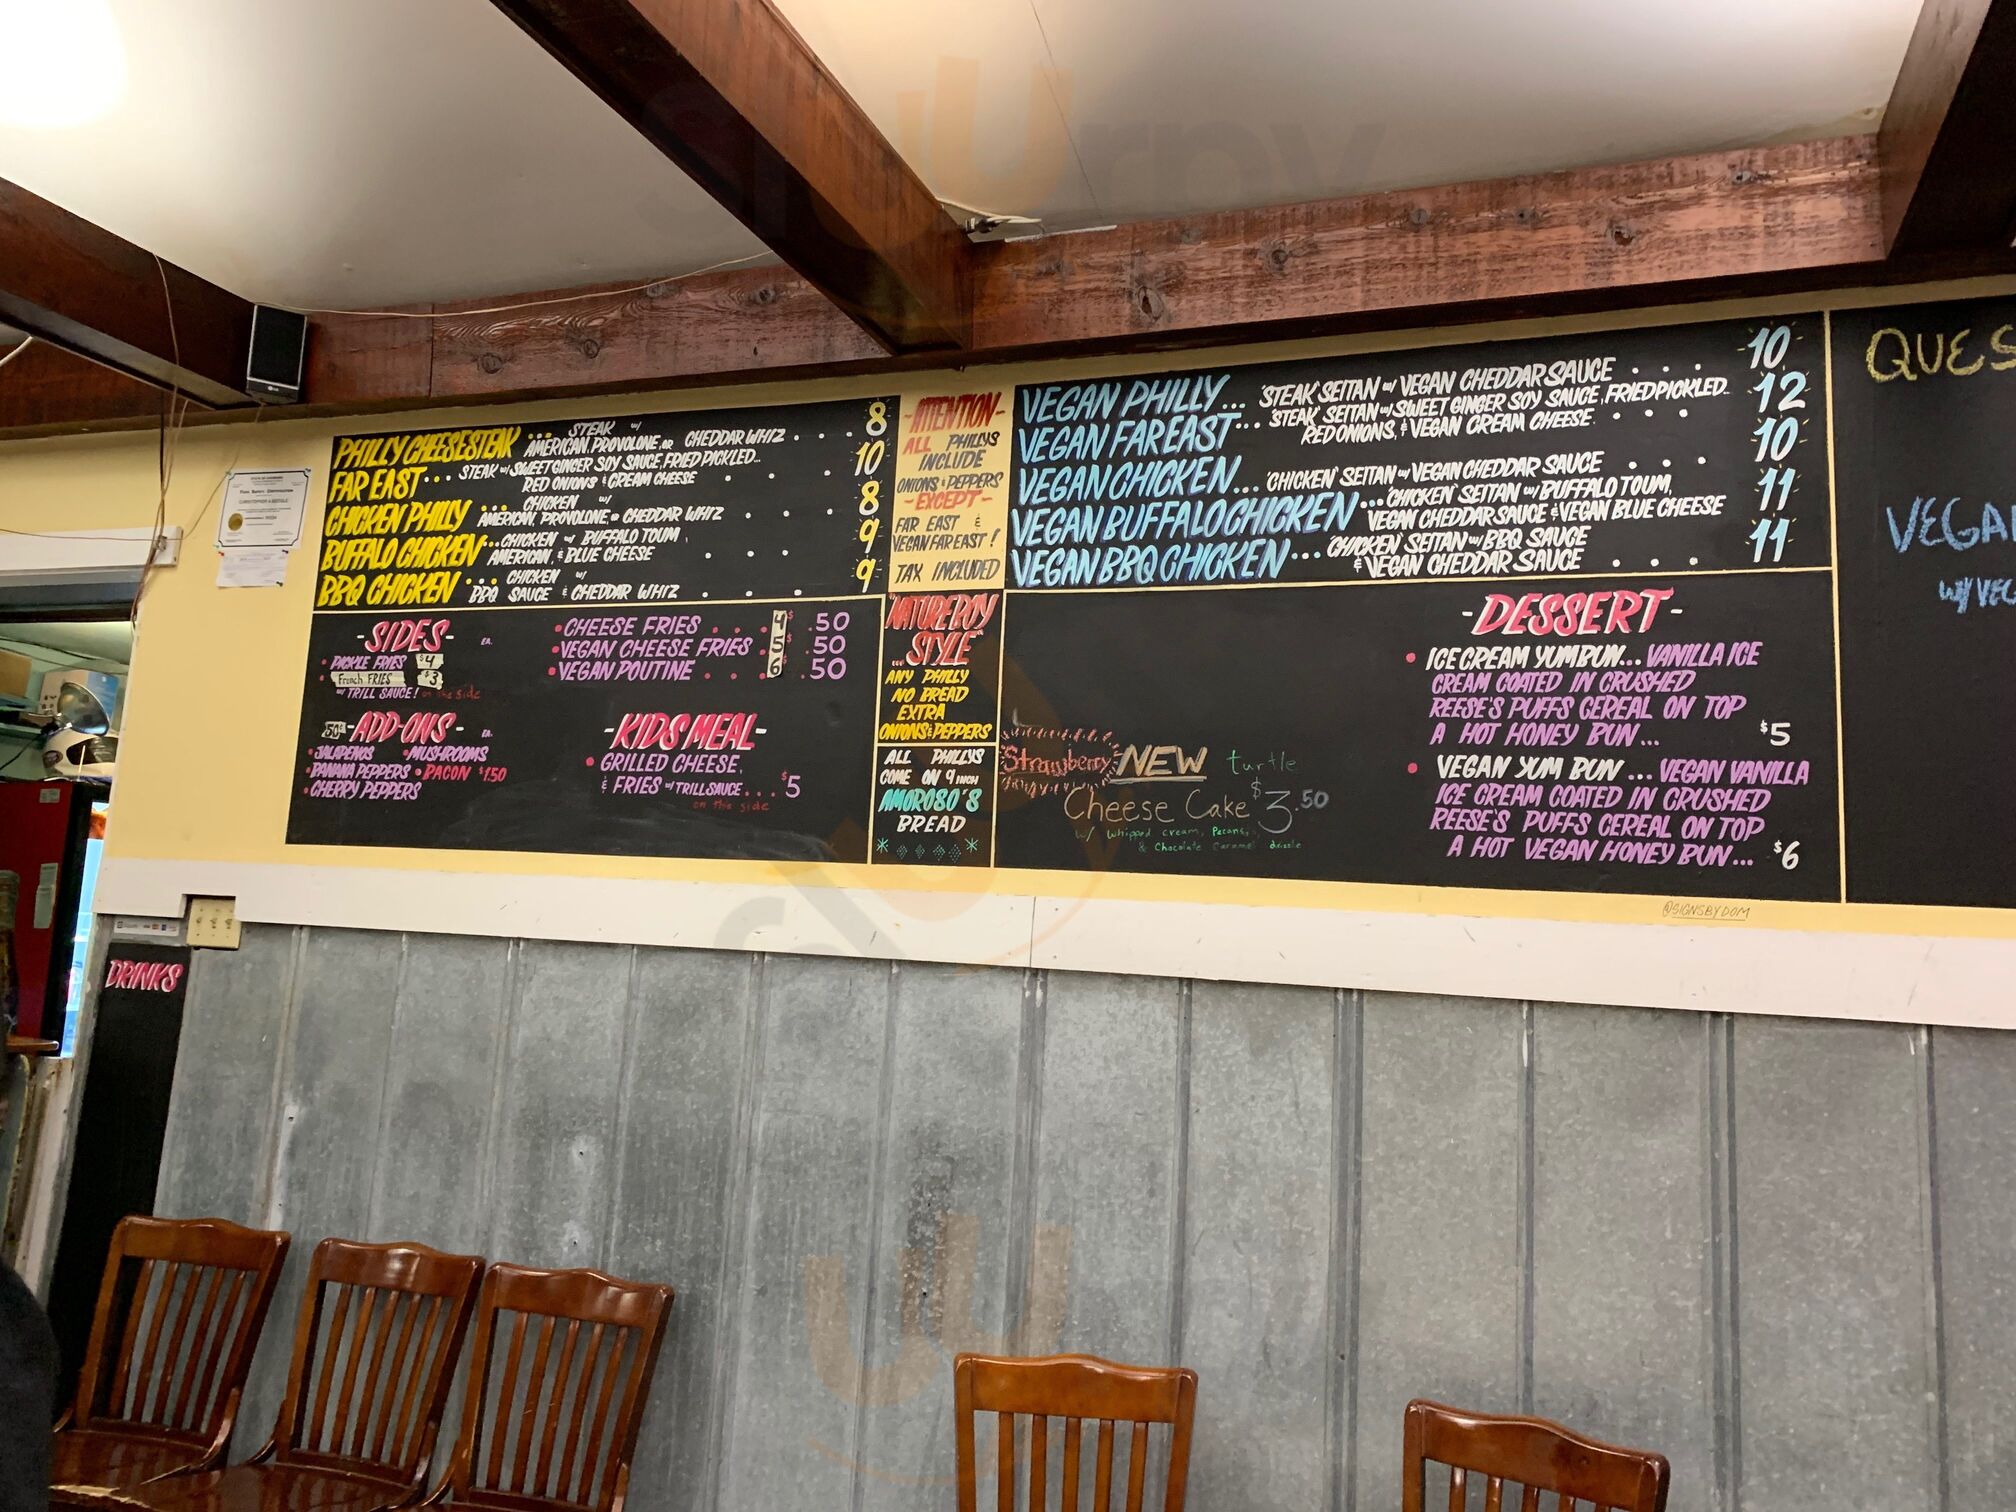 PHILLY CHEESESTEAK ... STEAK w/
AMERICAN, PROVOLONE, OR CHEDDAR WHIZ . . . 8
FAR EAST ... STEAK w/ SWEET GINGER SOY SAUCE, FRIED PICKLED..
RED ONIONS & CREAM CHEESE . . . 10
CHICKEN PHILLY CHICKEN w/
AMERICAN, PROVOLONE, OR CHEDDAR WHIZ . . . . 8
BUFFALO CHICKEN ... CHICKEN w/ BUFFALO TOUM,
AMERICAN, & BLUE CHEESE . . . . 9
BBQ CHICKEN ... CHICKEN w/
BBQ SAUCE & CHEDDAR WHIZ . . . . 9
-ATTENTION-
ALL PHILLYS
INCLUDE
ONIONS & PEPPERS
-EXCEPT-
FAR EAST &
VEGAN FAR EAST!
TAX INCLUDED
VEGAN PHILLY... 'STEAK' SEITAN w/ VEGAN CHEDDAR SAUCE . . . . 10
VEGAN FAR EAST... 'STEAK' SEITAN w/ SWEET GINGER SOY SAUCE, FRIED PICKLED.. 12
RED ONIONS, & VEGAN CREAM CHEESE . . .
VEGAN CHICKEN... 'CHICKEN' SEITAN w/ VEGAN CHEDDAR SAUCE . . . . 10
VEGAN BUFFALO CHICKEN ... 'CHICKEN' SEITAN w/ BUFFALO TOUM,
VEGAN CHEDDAR SAUCE & VEGAN BLUE CHEESE 11
VEGAN BBQ CHICKEN ... 'CHICKEN' SEITAN w/ BBQ SAUCE
& VEGAN CHEDDAR SAUCE . . . . 11
-SIDES- EA.
• PICKLE FRIES $4
• French FRIES $3
w/ TRILL SAUCE! on the side
• CHEESE FRIES . . . 4 $ .50
• VEGAN CHEESE FRIES . 5 $ .50
• VEGAN POUTINE . . . 6 $ .50
50¢ -ADD-ONS- EA.
• JALAPENOS • MUSHROOMS
• BANANA PEPPERS • BACON $1.50
• CHERRY PEPPERS
-KIDS MEAL-
• GRILLED CHEESE,
& FRIES w/ TRILL SAUCE . . . $5
on the side
"NATUREBOY
STYLE"
... ANY PHILLY
NO BREAD
EXTRA
ONIONS & PEPPERS
ALL PHILLYS
COME ON 9 INCH
AMOROSO'S
BREAD
Strawberry NEW turtle
Cheese Cake $3.50
w/ whipped cream, Pecans,
& Chocolate Caramel drizzle
-DESSERT-
• ICE CREAM YUM BUN... VANILLA ICE
CREAM COATED IN CRUSHED
REESE'S PUFFS CEREAL ON TOP
A HOT HONEY BUN... $5
• VEGAN YUM BUN ... VEGAN VANILLA
ICE CREAM COATED IN CRUSHED
REESE'S PUFFS CEREAL ON TOP
A HOT VEGAN HONEY BUN... $6
@SIGNSBYDOM
QUES
VEGA
w/ VEG
DRINKS